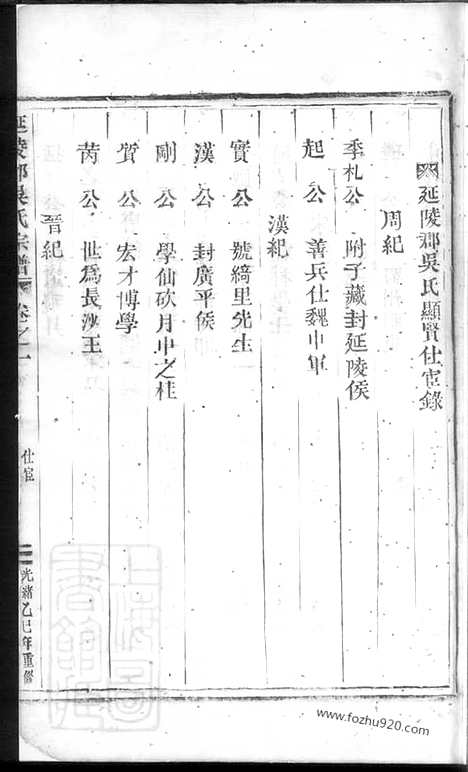 延陵郡吳氏顯賢仕宦錄
周紀
季札公 附子臧封延陵侯
起公 善兵仕魏中軍
漢紀
實公 號綺里先生
漢公 封廣平侯
剛公 學仙砍月中之桂
質公 宏才博學
芮公 世為長沙王
晉紀
延陵郡吳氏宗譜 卷之一 仕宦 光緒乙巳年重修
www.fozhu920.com